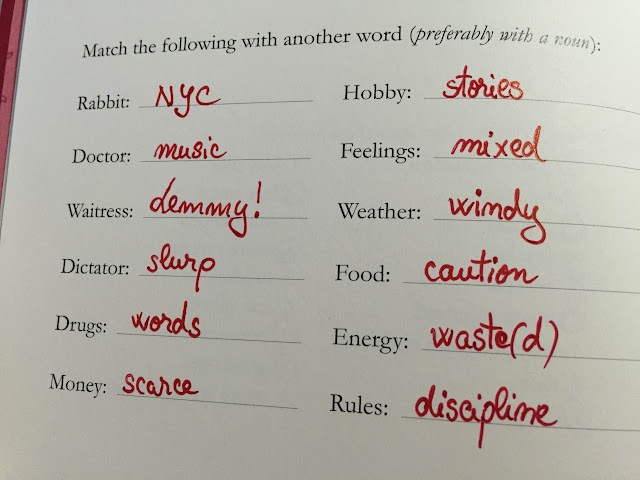 Match the following with another word (preferably with a noun):
Rabbit: NYC Hobby: stories
Doctor: music Feelings: mixed
Waitress: demmy! Weather: windy
Dictator: slurp Food: caution
Drugs: words Energy: waste(d)
Money: scarce Rules: discipline